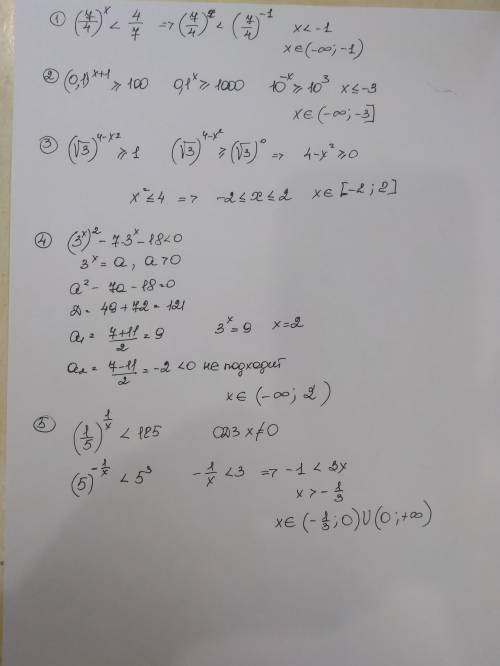 ① (7/4)^x < 4/7 => (7/4)^x < (7/4)^-1 x < -1
x∈(-∞; -1)
② (0,1)^x+1 ≥ 100 0,1^x ≥ 1000 10^-x ≥ 10^3 x ≤ -3
x∈(-∞; -3]
③ (√3)^4-x² ≥ 1 (√3)^4-x² ≥ (√3)^0 => 4-x² ≥ 0
x² ≤ 4 => -2 ≤ x ≤ 2 x∈[-2; 2]
④ (3^x)² - 7·3^x - 18 < 0
3^x = a, a > 0
a² - 7a - 18 = 0
D = 49 + 72 = 121
a₁ = (7+11)/2 = 9 3^x = 9 x = 2
a₂ = (7-11)/2 = -2 < 0 не подходит
x∈(-∞; 2)
⑤ (1/5)^1/x < 125 ОДЗ x ≠ 0
(5)^-1/x < 5³ -1/x < 3 => -1 < 3x
x > -1/3
x∈(-1/3; 0)∪(0; +∞)